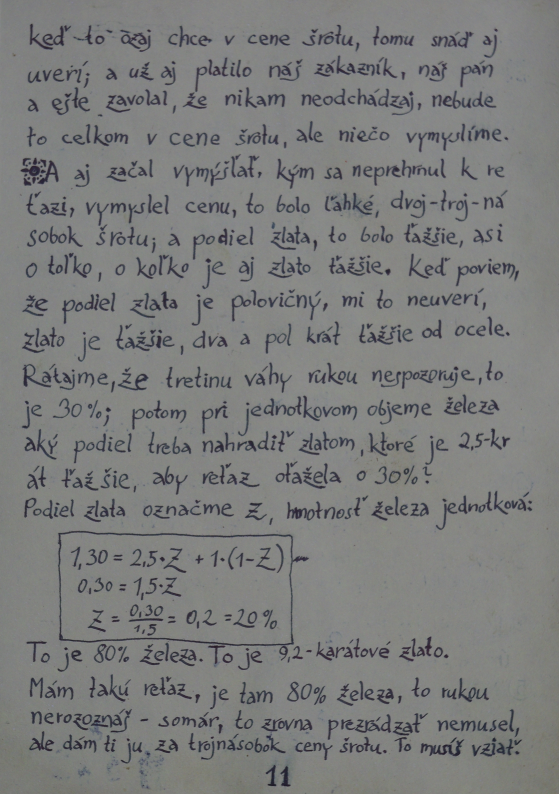 keď to ozaj chce v cene šrotu, tomu snáď aj
uverí; a už aj platilo náš zákazník, náš pán
a ešte zavolal, že nikam neodchádzaj, nebude
to celkom v cene šrotu, ale niečo vymyslíme.
A aj začal vymýšľať, kým sa neprehrnul k re
ťazi, vymyslel cenu, to bolo ľahké, dvoj-troj-ná
sobok šrotu; a podiel zlata, to bolo ťažšie, asi
o toľko, o koľko je aj zlato ťažšie. Keď poviem,
že podiel zlata je polovičný, mi to neuverí,
zlato je ťažšie, dva a pol krát ťažšie od ocele.
Rátajme, že tretinu váhy rukou nespozoruje, to
je 30%; potom pri jednotkovom objeme železa
aký podiel treba nahradiť zlatom, ktoré je 2,5-kr
át ťažšie, aby reťaz oťažela o 30%?
Podiel zlata označme Z, hmotnosť železa jednotková:
1,30 = 2,5·Z + 1·(1-Z)
0,30 = 1,5·Z
Z = 0,30/1,5 = 0,2 = 20%
To je 80% železa. To je 9,2-karátové zlato.
Mám takú reťaz, je tam 80% železa, to rukou
nerozoznáš - somár, to zrovna prezrádzať nemusel,
ale dám ti ju za trojnásobok ceny šrotu. To musíš vziať.
11